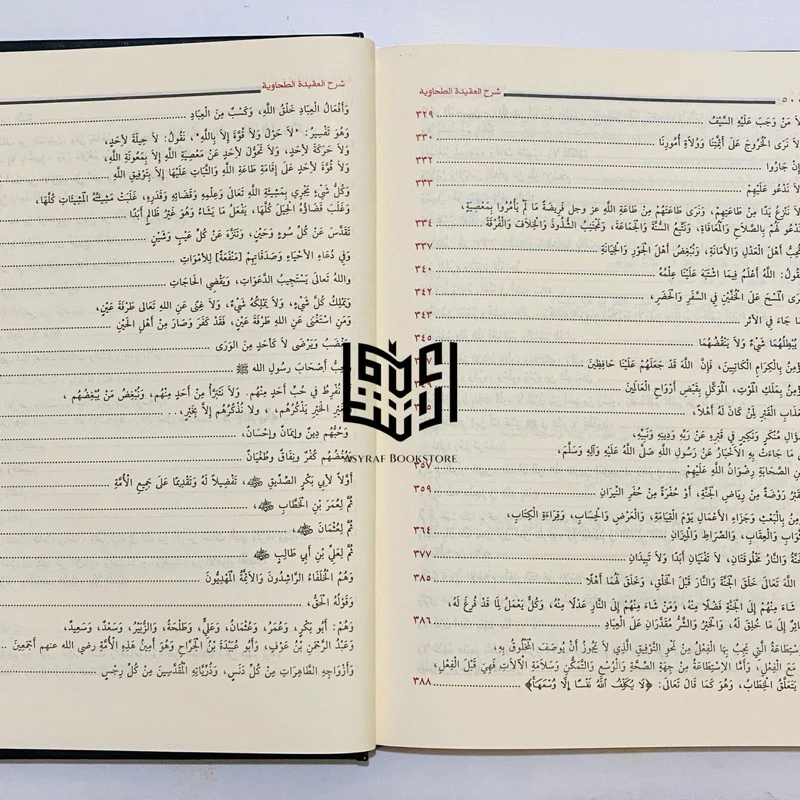 شرح العقيدة الطحاوية
٥٠٠
لَا مَنْ وَجَبَ عَلَيْهِ السَّيْفُ ٣٢٩
لَا نَرَى الْخُرُوجَ عَلَى أَئِمَّتِنَا وَوُلَاةِ أُمُورِنَا ٣٣٠
إِنْ جَارُوا ٣٣٢
لَا نَدْعُو عَلَيْهِمْ ٣٣٣
لَا نَنْزِعُ يَدًا مِنْ طَاعَتِهِمْ، وَنَرَى طَاعَتَهُمْ مِنْ طَاعَةِ اللَّهِ عز وجل فَرِيضَةً مَا لَمْ يَأْمُرُوا بِمَعْصِيَةٍ،
نَدْعُو لَهُمْ بِالصَّلَاحِ وَالْمُعَافَاةِ، وَنَتَّبِعُ السُّنَّةَ وَالْجَمَاعَةَ، وَنَجْتَنِبُ الشُّذُوذَ وَالْخِلَافَ وَالْفُرْقَةَ ٣٣٤
نُحِبُّ أَهْلَ الْعَدْلِ وَالْأَمَانَةِ، وَنُبْغِضُ أَهْلَ الْجَوْرِ وَالْخِيَانَةِ ٣٣٧
نَقُولُ: اللَّهُ أَعْلَمُ فِيمَا اشْتَبَهَ عَلَيْنَا عِلْمُهُ ٣٤٠
نَرَى الْمَسْحَ عَلَى الْخُفَّيْنِ فِي السَّفَرِ وَالْحَضَرِ، ٣٤٢
مَا جَاءَ فِي الْأَثَرِ ٣٤٣
يُبْطِلُهُمَا شَيْءٌ وَلَا يَنْقُضُهُمَا ٣٤٥
نُؤْمِنُ بِالْكِرَامِ الْكَاتِبِينَ، فَإِنَّ اللَّهَ قَدْ جَعَلَهُمْ عَلَيْنَا حَافِظِينَ
نُؤْمِنُ بِمَلَكِ الْمَوْتِ، الْمُوَكَّلِ بِقَبْضِ أَرْوَاحِ الْعَالَمِينَ
عَذَابِ الْقَبْرِ لِمَنْ كَانَ لَهُ أَهْلًا،
سُؤَالِ مُنْكَرٍ وَنَكِيرٍ فِي قَبْرِهِ عَنْ رَبِّهِ وَدِينِهِ وَنَبِيِّهِ،
مَا جَاءَتْ بِهِ الْأَخْبَارُ عَنْ رَسُولِ اللَّهِ صَلَّى اللَّهُ عَلَيْهِ وَآلِهِ وَسَلَّمَ،
عَنِ الصَّحَابَةِ رِضْوَانُ اللَّهِ عَلَيْهِمْ ٣٥٧
الْقَبْرُ رَوْضَةٌ مِنْ رِيَاضِ الْجَنَّةِ، أَوْ حُفْرَةٌ مِنْ حُفَرِ النِّيرَانِ ٣٥٩
نُؤْمِنُ بِالْبَعْثِ وَجَزَاءِ الْأَعْمَالِ يَوْمَ الْقِيَامَةِ، وَالْعَرْضِ وَالْحِسَابِ، وَقِرَاءَةِ الْكِتَابِ،
الثَّوَابِ وَالْعِقَابِ، وَالصِّرَاطِ وَالْمِيزَانِ ٣٦٤
الْجَنَّةُ وَالنَّارُ مَخْلُوقَتَانِ، لَا تَفْنَيَانِ أَبَدًا وَلَا تَبِيدَانِ ٣٧٧
اللَّهَ تَعَالَى خَلَقَ الْجَنَّةَ وَالنَّارَ قَبْلَ الْخَلْقِ، وَخَلَقَ لَهُمَا أَهْلًا ٣٨٥
شَاءَ مِنْهُمْ إِلَى الْجَنَّةِ فَضْلًا مِنْهُ، وَمَنْ شَاءَ مِنْهُمْ إِلَى النَّارِ عَدْلًا مِنْهُ، وَكُلٌّ يَعْمَلُ لِمَا قَدْ فُرِغَ لَهُ،
صَائِرٌ إِلَى مَا خُلِقَ لَهُ، وَالْخَيْرُ وَالشَّرُّ مُقَدَّرَانِ عَلَى الْعِبَادِ ٣٨٦
الِاسْتِطَاعَةُ الَّتِي يَجِبُ بِهَا الْفِعْلُ مِنْ نَحْوِ التَّوْفِيقِ الَّذِي لَا يَجُوزُ أَنْ يُوصَفَ الْمَخْلُوقُ بِهِ،
مَعَ الْفِعْلِ، وَأَمَّا الِاسْتِطَاعَةُ مِنْ جِهَةِ الصِّحَّةِ وَالْوُسْعِ وَالتَّمَكُّنِ وَسَلَامَةِ الْآلَاتِ فَهِيَ قَبْلَ الْفِعْلِ،
يَتَعَلَّقُ الْخِطَابُ، وَهُوَ كَمَا قَالَ تَعَالَى: ﴿لَا يُكَلِّفُ اللَّهُ نَفْسًا إِلَّا وُسْعَهَا﴾ ٣٨٨
شرح العقيدة الطحاوية
وَأَفْعَالُ الْعِبَادِ خَلْقُ اللَّهِ، وَكَسْبٌ مِنَ الْعِبَادِ
وَهُوَ تَفْسِيرُ: "لَا حَوْلَ وَلَا قُوَّةَ إِلَّا بِاللَّهِ"، نَقُولُ: لَا حِيلَةَ لِأَحَدٍ،
وَلَا حَرَكَةَ لِأَحَدٍ، وَلَا تَحَوُّلَ لِأَحَدٍ عَنْ مَعْصِيَةِ اللَّهِ إِلَّا بِمَعُونَةِ اللَّهِ،
وَلَا قُوَّةَ لِأَحَدٍ عَلَى إِقَامَةِ طَاعَةِ اللَّهِ وَالثَّبَاتِ عَلَيْهَا إِلَّا بِتَوْفِيقِ اللَّهِ
وَكُلُّ شَيْءٍ يَجْرِي بِمَشِيئَةِ اللَّهِ تَعَالَى وَعِلْمِهِ وَقَضَائِهِ وَقَدَرِهِ، غَلَبَتْ مَشِيئَتُهُ الْمَشِيئَاتِ كُلَّهَا،
وَغَلَبَ قَضَاؤُهُ الْحِيَلَ كُلَّهَا، يَفْعَلُ مَا يَشَاءُ وَهُوَ غَيْرُ ظَالِمٍ أَبَدًا
تَقَدَّسَ عَنْ كُلِّ سُوءٍ وَحَيْنٍ، وَتَنَزَّهَ عَنْ كُلِّ عَيْبٍ وَشَيْنٍ
وَفِي دُعَاءِ الْأَحْيَاءِ وَصَدَقَاتِهِمْ [مَنْفَعَةٌ] لِلْأَمْوَاتِ
وَاللهُ تَعَالَى يَسْتَجِيبُ الدَّعَوَاتِ، وَيَقْضِي الْحَاجَاتِ
وَيَمْلِكُ كُلَّ شَيْءٍ، وَلَا يَمْلِكُهُ شَيْءٌ، وَلَا غِنَى عَنِ اللهِ تَعَالَى طَرْفَةَ عَيْنٍ،
وَمَنِ اسْتَغْنَى عَنِ اللهِ طَرْفَةَ عَيْنٍ، فَقَدْ كَفَرَ وَصَارَ مِنْ أَهْلِ الْحَيْنِ
يَغْضَبُ وَيَرْضَى لَا كَأَحَدٍ مِنَ الْوَرَى
نُحِبُّ أَصْحَابَ رَسُولِ اللهِ ﷺ
نُفْرِطُ فِي حُبِّ أَحَدٍ مِنْهُمْ. وَلَا نَتَبَرَّأُ مِنْ أَحَدٍ مِنْهُمْ، وَنُبْغِضُ مَنْ يُبْغِضُهُمْ،
بِغَيْرِ الْخَيْرِ يَذْكُرُهُمْ، ، وَلَا نَذْكُرُهُمْ إِلَّا بِخَيْرٍ، . .
وَحُبُّهُمْ دِينٌ وَإِيمَانٌ وَإِحْسَانٌ،
وَبُغْضُهُمْ كُفْرٌ وَنِفَاقٌ وَطُغْيَانٌ
أَوَّلًا لِأَبِي بَكْرٍ الصِّدِّيقِ، تَفْضِيلًا لَهُ وَتَقْدِيمًا عَلَى جَمِيعِ الْأُمَّةِ
ثُمَّ لِعُمَرَ بْنِ الْخَطَّابِ،
ثُمَّ لِعُثْمَانَ،
ثُمَّ لِعَلِيِّ بْنِ أَبِي طَالِبٍ
وَهُمُ الْخُلَفَاءُ الرَّاشِدُونَ وَالْأَئِمَّةُ الْمَهْدِيُّونَ
وَقَوْلُهُ الْحَقُّ،
وَهُمْ: أَبُو بَكْرٍ، وَعُمَرُ، وَعُثْمَانُ، وَعَلِيٌّ، وَطَلْحَةُ، وَالزُّبَيْرُ، وَسَعْدٌ، وَسَعِيدٌ،
وَعَبْدُ الرَّحْمَنِ بْنُ عَوْفٍ، وَأَبُو عُبَيْدَةَ بْنُ الْجَرَّاحِ وَهُوَ أَمِينُ هَذِهِ الْأُمَّةِ رضي الله عنهم أَجْمَعِينَ
وَأَزْوَاجِهِ الطَّاهِرَاتِ مِنْ كُلِّ دَنَسٍ، وَذُرِّيَّاتِهِ الْمُقَدَّسِينَ مِنْ كُلِّ رِجْسٍ
ASYRAF BOOKSTORE